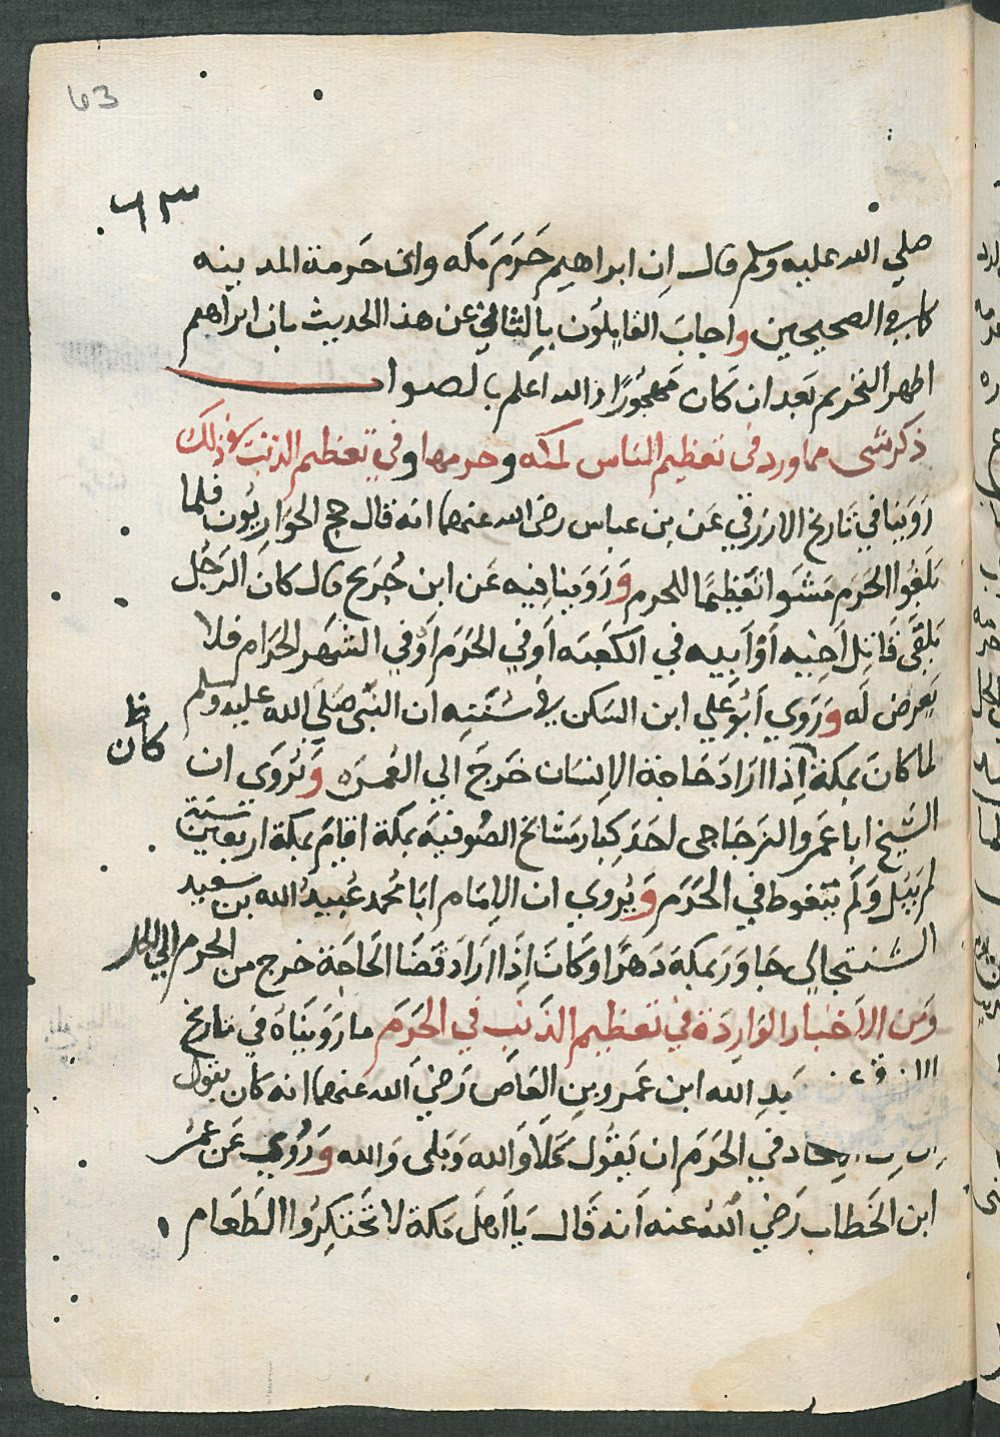 63
٦٣
صلي الله عليه وسلم قال ان ابراهيم حَرَمَ مكه واني حَرمة المدينه
كما في الصحيحين واجابَ القايلوُن بالثاني عن هذا الحديث بان ابراهيم
اظهر التحريم بَعد ان كان مَهجُورًا والله اعلم بالصواب
ذكر شى مما ورد في تعظيم الناس لمكه وحرمها وفي تعظيم الذنب في ذلك
رَوَينا في تَاريخ الازرقي عَن بن عباس رضى الله عنهما انه قال حج الحوَاريُون فلما
بَلَغُوا الحَرَم مَشَوا تَعظِيمًا للحرم وَرَوَينا فيه عَن ابن جُرَيج قال كانَ الرَجُل
يَلقَى قَاتِل اَخِيه اَوْ اَبِيه في الكَعبَه اَو في الحَرَم اَوْ في الشهَر الحرَام فلا
يَعرض لَه وَرَوي اَبُو عَلي ابن السَكن في سُنَنِه ان النَبي صَلى الله عليه وسلم
لما كانَ بمكة اِذا ارَادَ حَاجة الانسَان خَرجَ الي المُغمس وَيُروَى ان
كان ظ
الشَيخ ابا عَمرو الزجَاجى احَدَ كِبار مَشائخ الصُوفيَه بمكة اقامَ بمكة اربعين سَنة
لم يَبُل وَلَم يتغوط في الحَرَم وَيُروي ان الاِمَام ابَا محمد عُبيدُ الله بن سعيد
السَّنتجالى جَاوَرَ بمكة دَهرًا وكانَ اِذَا ارَادَ قضَا الحَاجَة خرج من الحرم الي الحل
وَمن الاَخبار الوَاردَة في تَعظيم الذَنب في الحَرَم مارَوَينَاه في تاريخ
يدِ الله ابن عَمرو بن العَاص رَضي الله عنهما انه كان يقول
في الحَرَم ان يَقول كَلَا وَالله وَبَلى وَالله وَرُوي عَن عمَر
ابن الخَطاب رَضي اللهُ عنه اَنه قَال يَا اَهلَ مَكة لا تحتكِرُوا الطَعَام